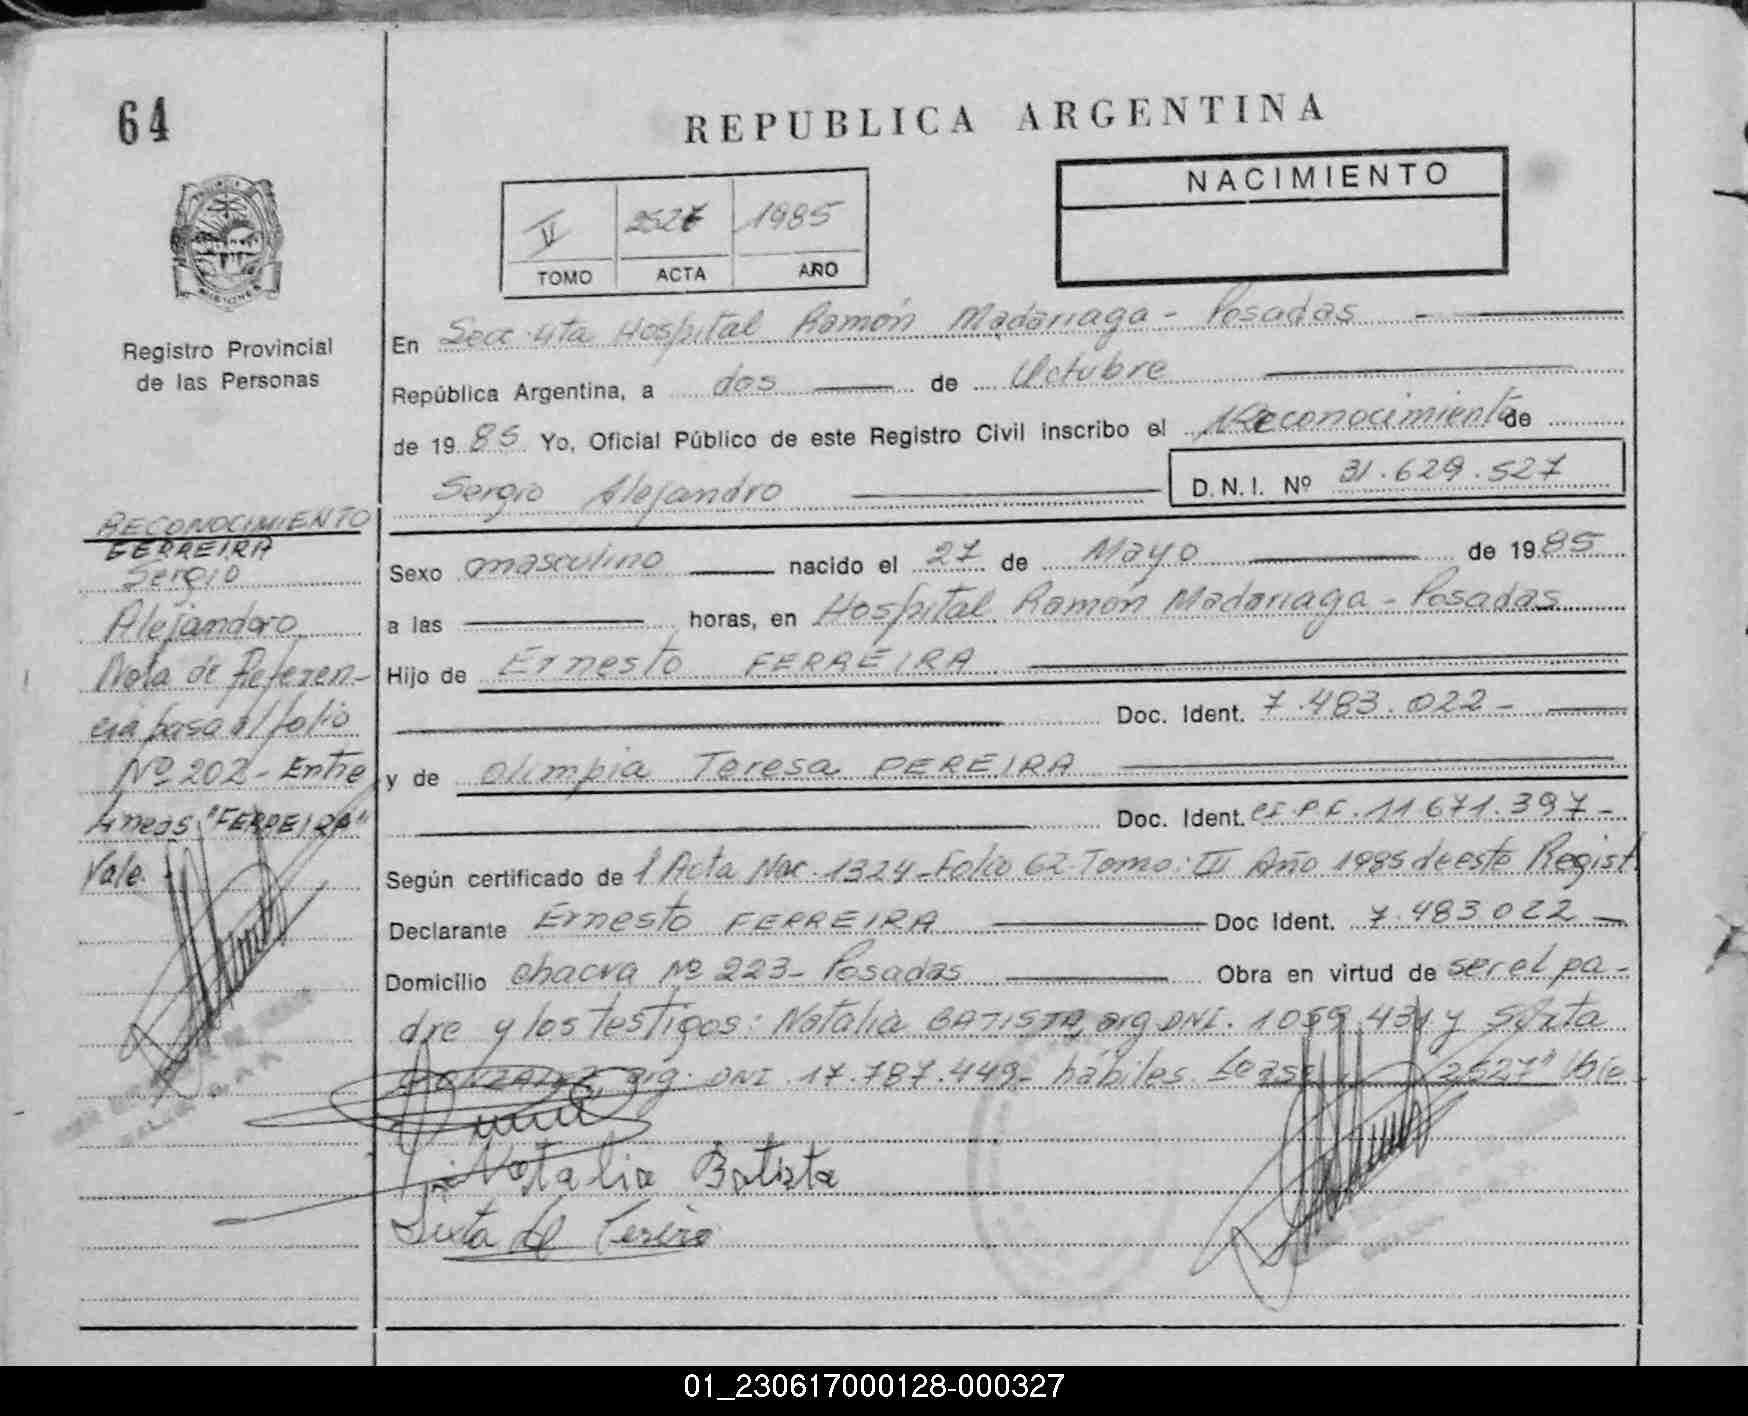 64
REPUBLICA ARGENTINA
NACIMIENTO
V 2527 1985
TOMO ACTA AÑO
MISIONES
Registro Provincial
de las Personas
En Secc. 4ta Hospital Ramón Madariaga - Posadas
República Argentina, a dos de Octubre
de 1985 Yo, Oficial Público de este Registro Civil inscribo el Reconocimiento de
Sergio Alejandro D.N.I. Nº 31.629.527
Sexo masculino nacido el 27 de Mayo de 1985
a las horas, en Hospital Ramón Madariaga - Posadas
Hijo de Ernesto FERREIRA
Doc. Ident. 7.483.022-
y de Olimpia Teresa PEREIRA
Doc. Ident. CI.P.F. 11671.397-
Según certificado de Acta Nac. 1324-Folio 62-Tomo: III Año 1985 de este Regist
Declarante Ernesto FERREIRA Doc Ident. 7.483022
Domicilio chacra Nº 223- Posadas Obra en virtud de ser el pa-
dre y los testigos: Natalia BATISTA, arg DNI. 1059.431 y Sixta
GONZALEZ, arg. DNI 17.787.449- hábiles. Lease "2527" Vale
Natalia Batista
Sixta
RECONOCIMIENTO
FERREIRA
Sergio
Alejandro
Nota de Referen-
cia pasa al folio
Nº 202- Entre
líneas "FERREIRA"
Vale.
01_230617000128-000327